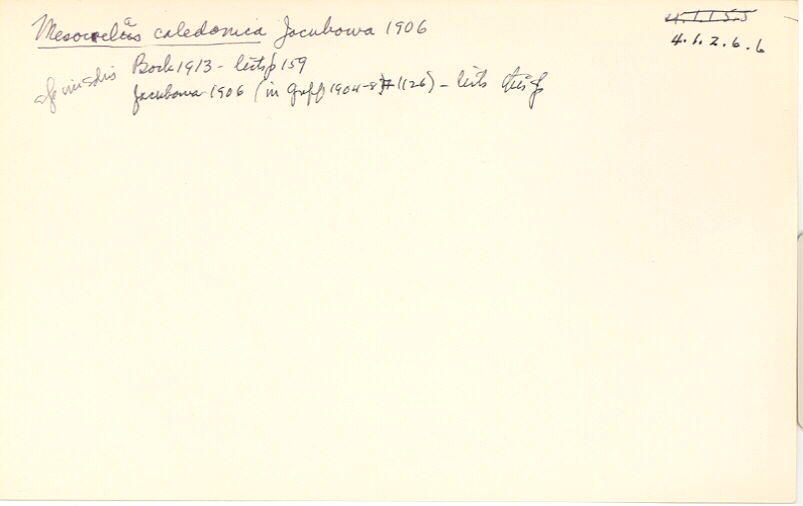 Mesocoelas caledonica Jacubowa 1906
4.1.15.5
4.1.2.6.6
Bock 1913 - lists p 159
Jacubowa 1906 (in Graff 1904-8 1126) - lists